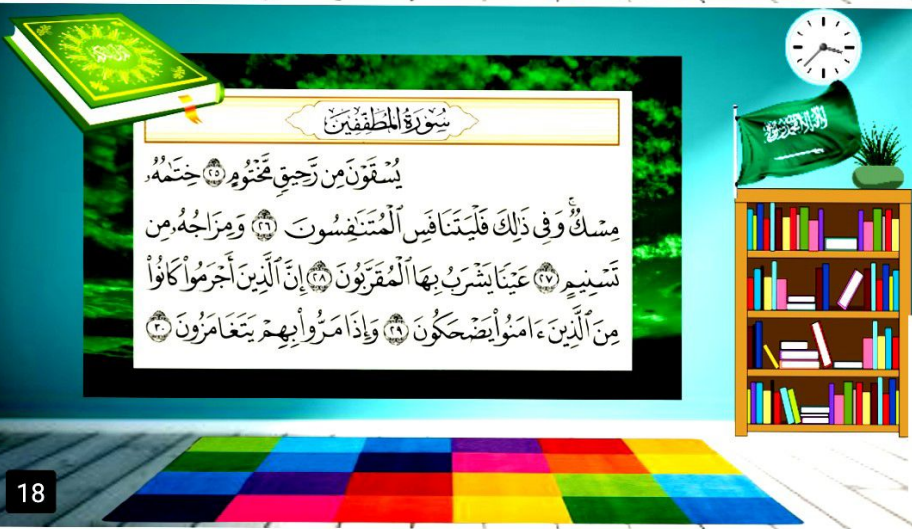 سُورَةُ المُطَفِّفِينَ
يُسْقَوْنَ مِن رَّحِيقٍ مَّخْتُومٍ ٢٥ خِتَٰمُهُۥ
مِسْكٌۚ وَفِى ذَٰلِكَ فَلْيَتَنَافَسِ ٱلْمُتَنَٰفِسُونَ ٢٦ وَمِزَاجُهُۥ مِن
تَسْنِيمٍ ٢٧ عَيْنًا يَشْرَبُ بِهَا ٱلْمُقَرَّبُونَ ٢٨ إِنَّ ٱلَّذِينَ أَجْرَمُوا۟ كَانُوا۟
مِنَ ٱلَّذِينَ ءَامَنُوا۟ يَضْحَكُونَ ٢٩ وَإِذَا مَرُّوا۟ بِهِمْ يَتَغَامَزُونَ ٣٠
18